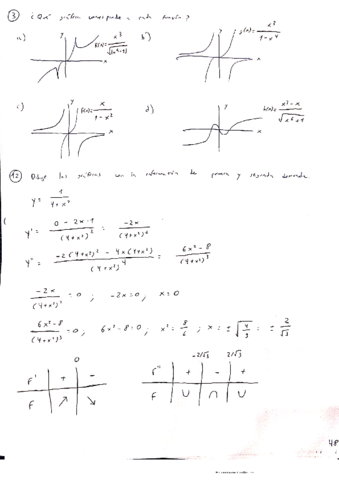 ③ ¿Qué gráfica corresponde a cada función?
a) y x
b) y g(x)= x³/(1-x⁴) x
c) y f(x)= x/(1-x²) x
d) y h(x)= (x³-x)/√(x⁶+1) x
⑫ Dibuje las gráficas con la información de primera y segunda derivada.
y= 1/(4+x²)
y'= (0 - 2x·1)/(4+x²)² = -2x/(4+x²)²
y''= = (6x²-8)/(4+x²)³
-2x/(4+x²)² =0 ; -2x=0 ; x=0
(6x²-8)/(4+x²)³ =0 ; 6x²-8=0 ; x²= 8/6 ; x= ±√(4/3) = ± 2/√3
0 -2/√3 2/√3
F' + - F'' + - +
F ↗ ↘ F ∪ ∩ ∪
48